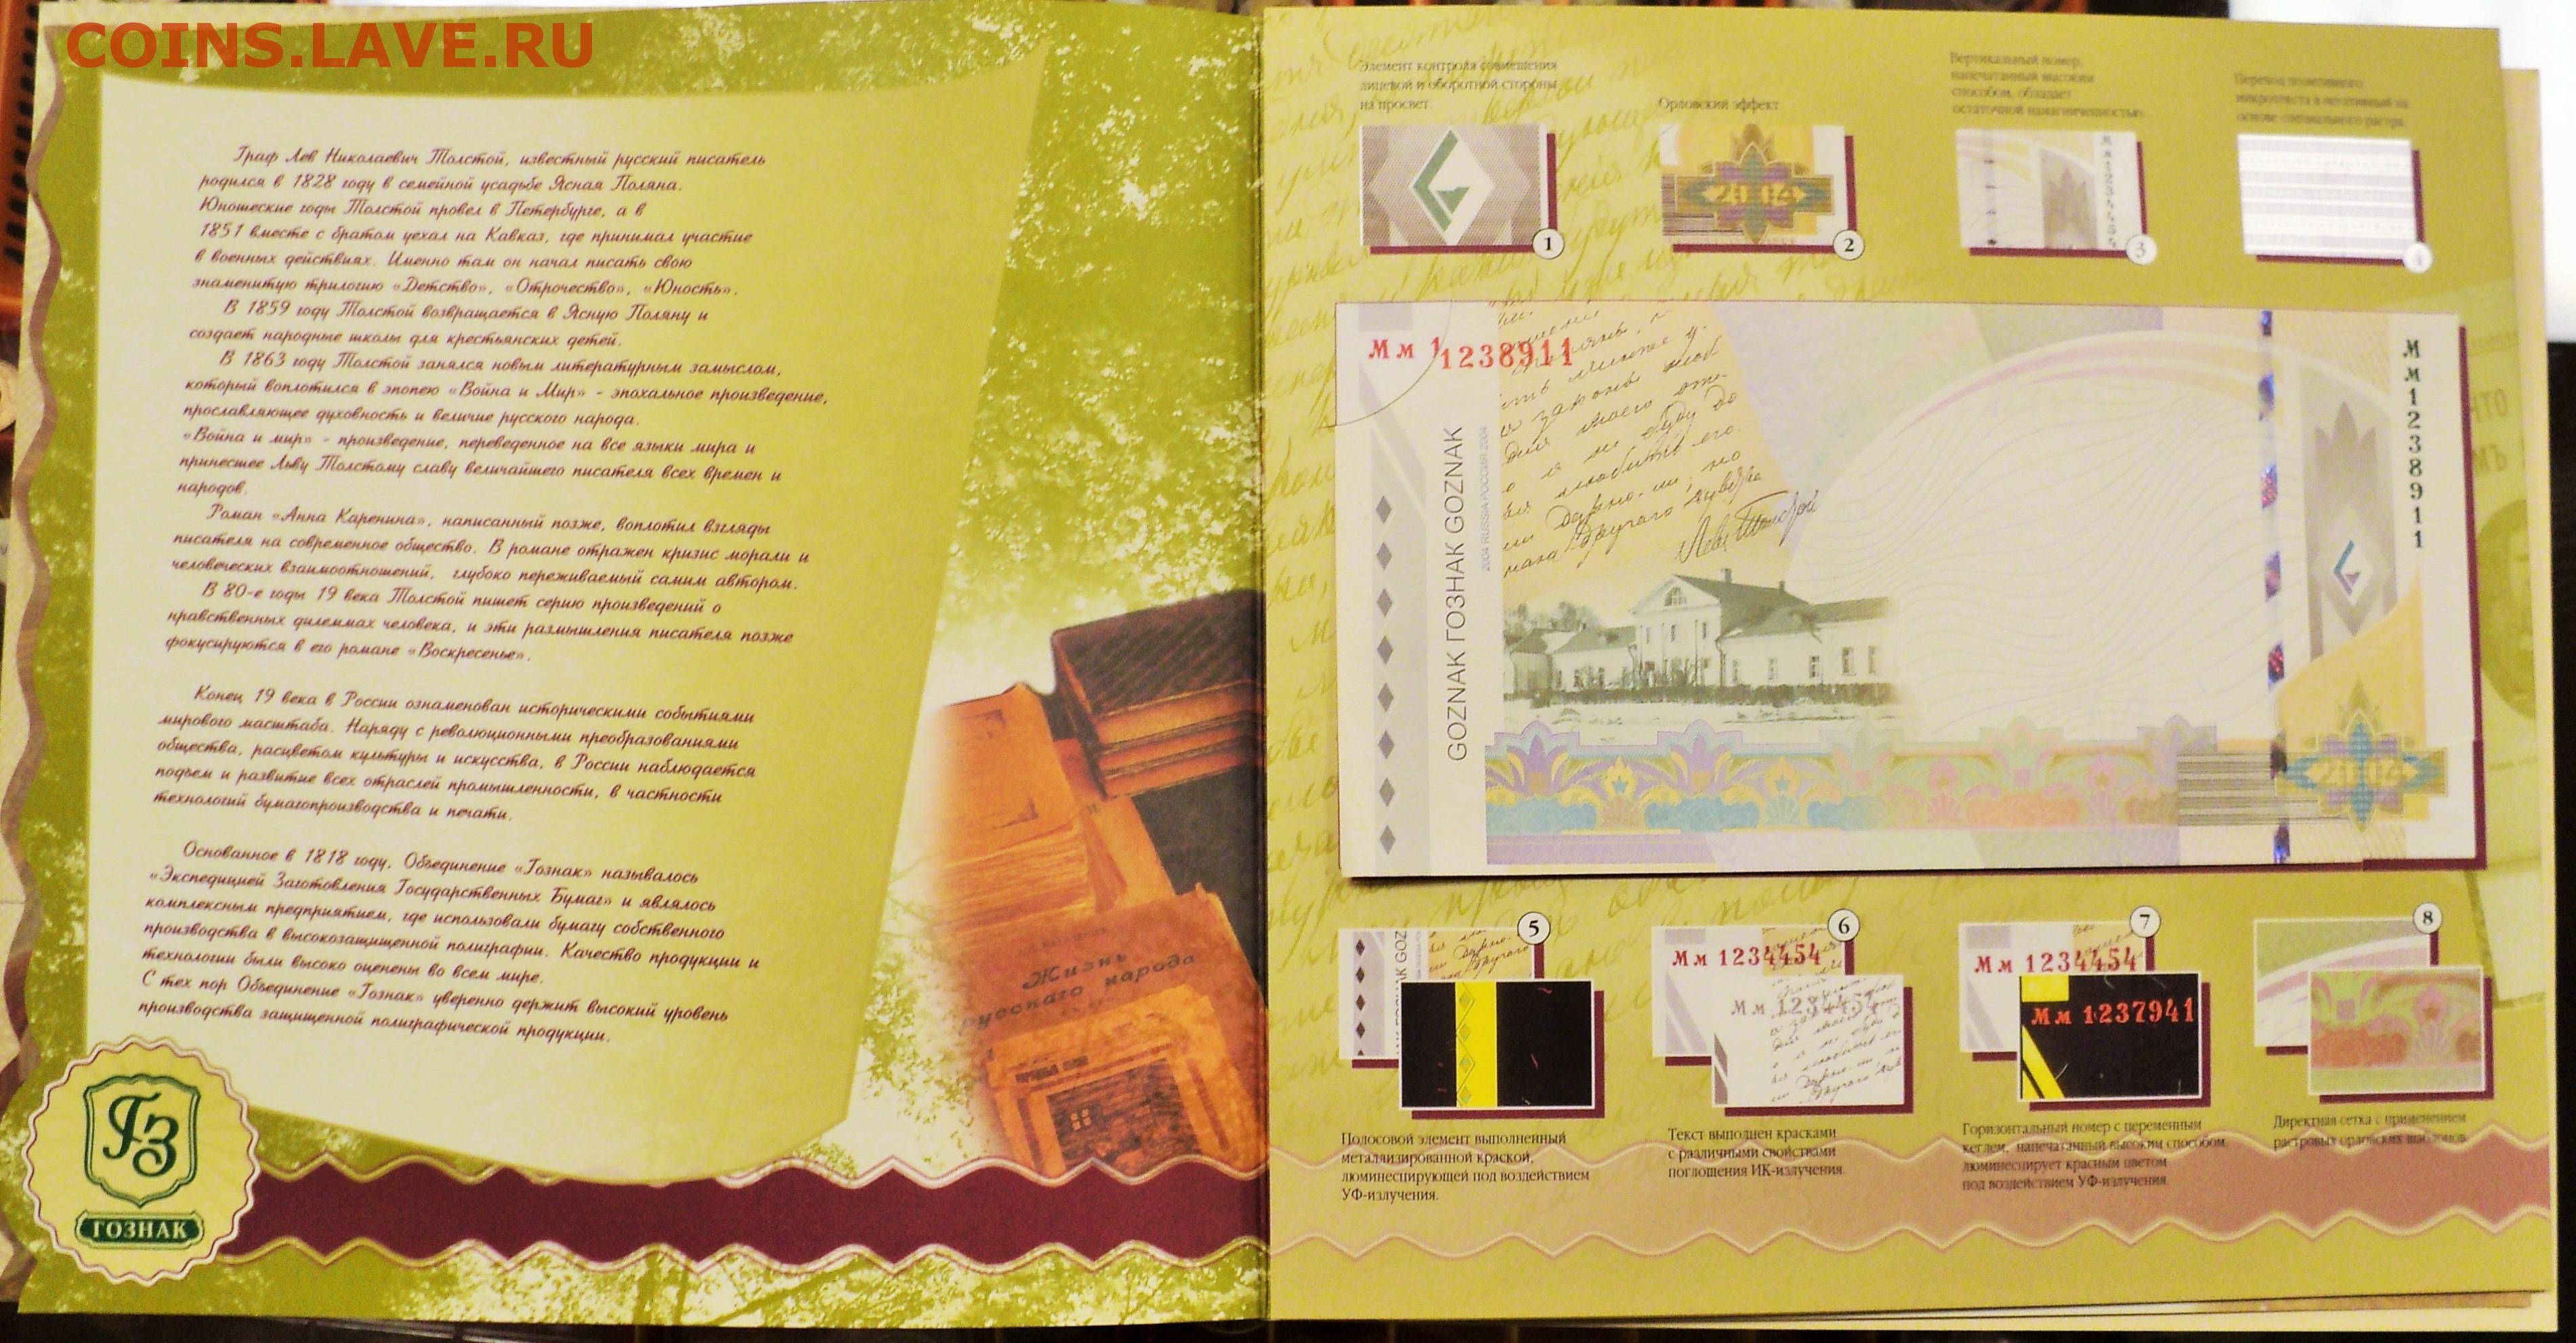 COINS.LAVE.RU
Граф Лев Николаевич Толстой, известный русский писатель
родился в 1828 году в семейной усадьбе Ясная Поляна.
Юношеские годы Толстой провел в Петербурге, а в
1851 вместе с братом уехал на Кавказ, где принимал участие
в военных действиях. Именно там он начал писать свою
знаменитую трилогию «Детство», «Отрочество», «Юность».
В 1859 году Толстой возвращается в Ясную Поляну и
создает народные школы для крестьянских детей.
В 1863 году Толстой занялся новым литературным замыслом,
который воплотился в эпопею «Война и Мир» - эпохальное произведение,
прославляющее духовность и величие русского народа.
«Война и мир» - произведение, переведенное на все языки мира и
принесшее Льву Толстому славу величайшего писателя всех времен и
народов.
Роман «Анна Каренина», написанный позже, воплотил взгляды
писателя на современное общество. В романе отражен кризис морали и
человеческих взаимоотношений, глубоко переживаемый самим автором.
В 80-е годы 19 века Толстой пишет серию произведений о
нравственных дилеммах человека, и эти размышления писателя позже
фокусируются в его романе «Воскресенье».
Конец 19 века в России ознаменован историческими событиями
мирового масштаба. Наряду с революционными преобразованиями
общества, расцветом культуры и искусства, в России наблюдается
подъем и развитие всех отраслей промышленности, в частности
технологий бумагопроизводства и печати.
Основанное в 1818 году, Объединение «Гознак» называлось
«Экспедицией Заготовления Государственных Бумаг» и являлось
комплексным предприятием, где использовали бумагу собственного
производства в высокозащищенной полиграфии. Качество продукции и
технологии были высоко оценены во всем мире.
С тех пор Объединение «Гознак» уверенно держит высокий уровень
производства защищенной полиграфической продукции.
ГЗ
ГОЗНАК
Жизнь
русскаго народа
Элемент контроля совмещения
лицевой и оборотной стороны
на просвет
1
Орловский эффект
2004
2
Вертикальный номер,
напечатанный высоким
способом, обладает
остаточной намагниченностью.
3
Перевод позитивного
микротекста в негативный на
основе специального растра.
4
Мм 1
1238911
GOZNAK ГОЗНАК GOZNAK
2004 RUSSIA РОССИЯ 2004
Левъ Толстой
Мм1238911
2004
5
Полосовой элемент выполненный
металлизированной краской,
люминесцирующей под воздействием
УФ-излучения.
6
Мм 1234454
Мм 1234454
Текст выполнен красками
с различными свойствами
поглощения ИК-излучения.
7
Мм 1234454
Мм 1237941
Горизонтальный номер с переменным
кеглем, напечатанный высоким способом,
люминесцирует красным цветом
под воздействием УФ-излучения.
8
Директная сетка с применением
растровых орловских шаблонов.